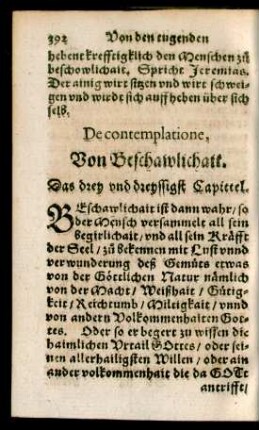 392 Von den tugenden
hebent krefftigklich den Menschen zů
beschowlichait, Spricht Jeremias.
Der ainig wirt sitzen vnd wirt schwei-
gen vnd wirdt sich auff heben über sich
selb.
De contemplatione,
Von Beschawlichait.
Das drey vnd dreyssigst Capittel.
BEschawlichait ist dann wahr / so
der Mensch versammelt all sein
begirlichait, vnd all sein Kräfft
der Seel / zů bekennen mit Lust vnnd
verwunderung deß Gemüts etwas
von der Göttlichen Natur nämlich
von der Macht / Weißhait / Gütig-
keit / Reichtumb / Mileigkait / vnnd
von andern Volkommenhaiten Got-
tes. Oder so er begert zu wissen die
haimlichen Vrtail GOttes / oder sei-
nen allerhailigsten Willen / oder ain
ander volkommenhait die da GOTt
antrifft /